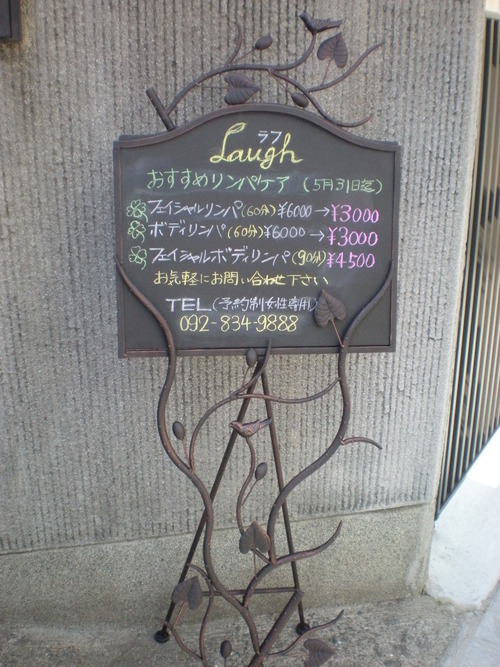 ラフ
Laugh
おすすめリンパケア (5月31日迄)
フェイシャルリンパ(60分)¥6000→¥3000
ボディリンパ(60分)¥6000→¥3000
フェイシャルボディリンパ(90分)¥4500
お気軽にお問い合わせ下さい
TEL(予約制女性専用)
092-834-9888